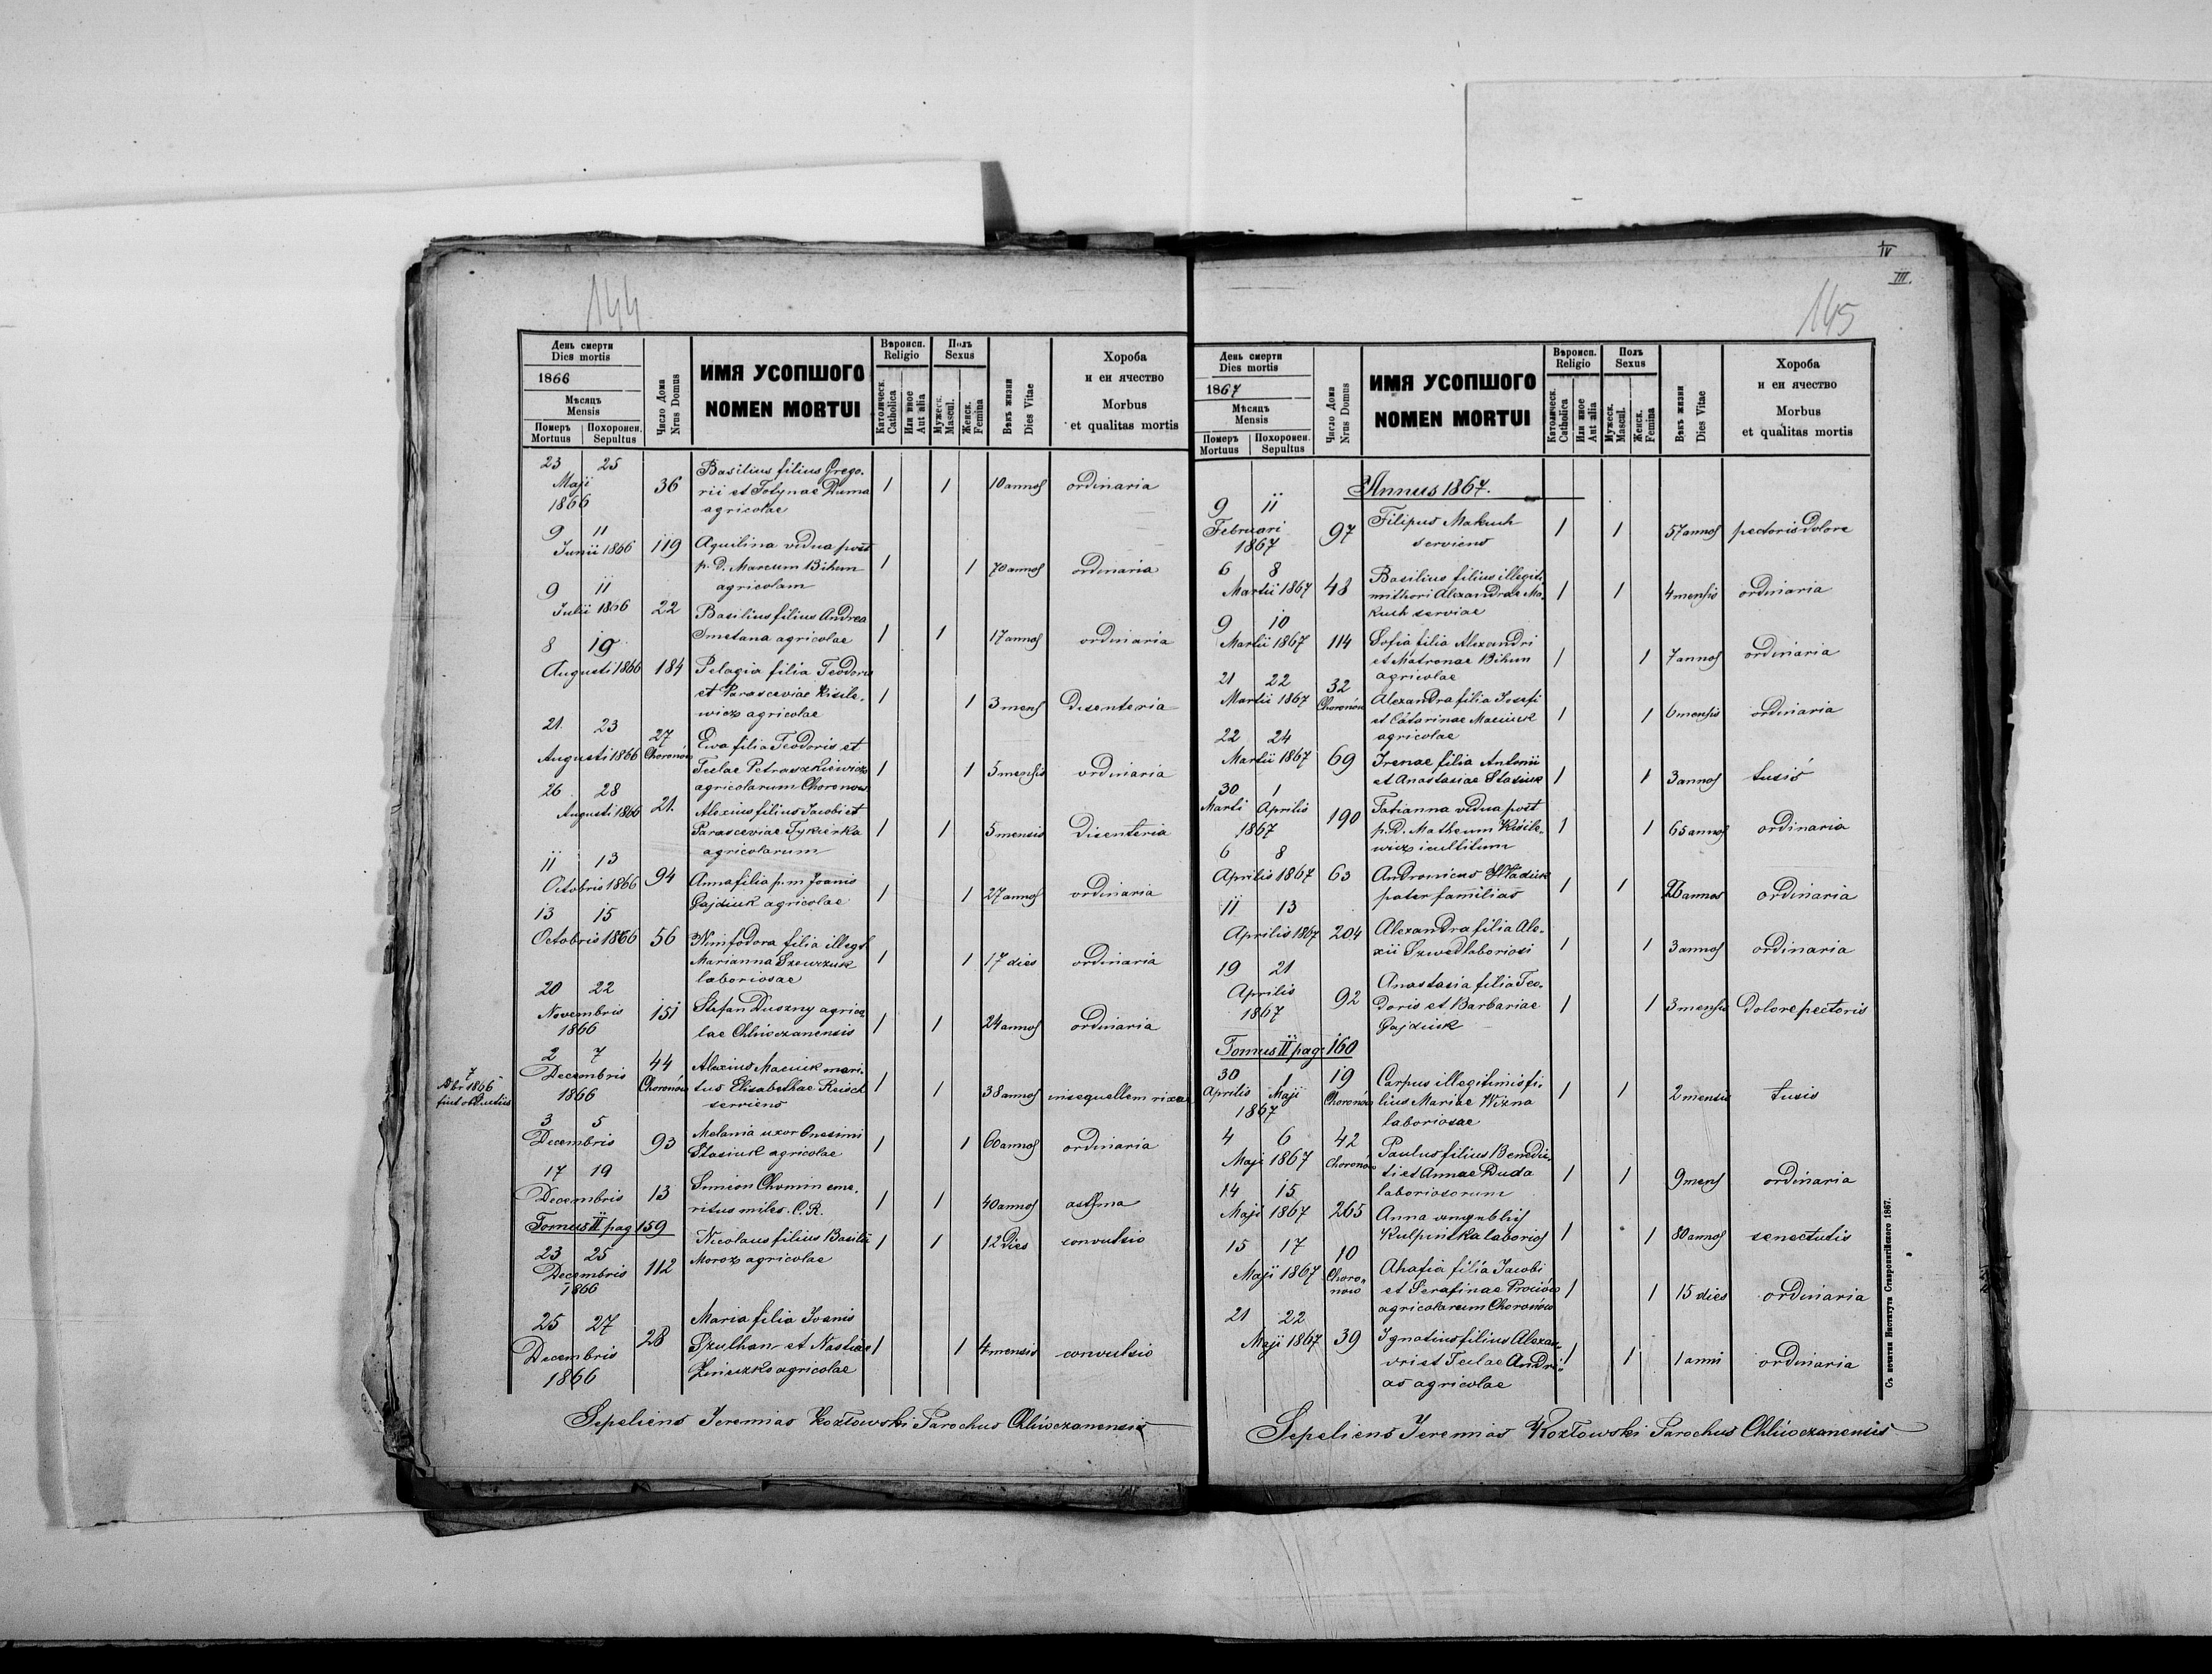 144
День смерти
Dies mortis
1866
Мѣсяць
Mensis
Померъ Mortuus
Похоронен. Sepultus
Число Дома
Nrus Domus
ИМЯ УСОПШОГО
NOMEN MORTUI
Вѣроисп.
Religio
Католическ.
Catholica
Или иное
Aut alia
Полъ
Sexus
Мужеск.
Mascul.
Женск.
Femina
Вѣкъ жизни
Dies Vitae
Хороба
и еи ячество
Morbus
et qualitas mortis
23 25
Maji
1866
36
Basilius filius Grego-
rii et Fotynae Duma
agricolae
1 1 10 annos ordinaria
9 11
Junii 1866 119
Aquilina vidua post
p. D. Marcum Bihun
agricolam
1 1 70 annos ordinaria
9 11
Julii 1866 22
Basilius filius Andrea
Smetana agricolae
1 1 17 annos ordinaria
8 19
Augusti 1866 184
Pelagia filia Teodoris
et Parasceviae Kisile-
wicz agricolae
1 1 3 mens Disenteria
21. 23
Augusti 1866
27
Choronów
Ewa filia Teodoris et
Teclae Petraszkiewicz
agricolarum Choronow
1 1 5 mensis ordinaria
26 28
Augusti 1866 21.
Alexius filius Jacobi et
Parasceviae Tykierka
agricolarum
1 1 5 mensis Disenteria
11 13
Octobris 1866 94
Anna filia p. m Joanis
Gajdiuk agricolae
1 1 27 annos ordinaria
13 15
Octobris 1866 56
Nimfodora filia illegt
Marianna Szewczuk
laboriosae
1 1 17 dies ordinaria
20 22
Novembris
1866
151
Stefan Duszny agrico
lae Chliwczanensis
1 1 24 annos ordinaria
7
Xbr 1866
fiut obductus
2 7
Decembris
1866
44
Choronów
Alexius Maciuk mari-
tus Elisabethae Rusch
serviens
1 1 38 annos insequellem rixae
3 5
Decembris 93
Melania uxor Onesimi
Stasiuk agricolae
1 1 60 annos ordinaria
17 19
Decembris 13
Simeon Chomin eme-
ritus miles. C. R.
1 1 40 annos asthma
Tomus II pag 159
23 25
Decembris
1866
112
Nicolaus filius Basilii
Moroz agricolae
1 1 12 Dies convulsio
25 27
Decembris
1866
28
Maria filia Joanis
Szulhan et Nastiae
Zinczko agricolae
1 1 4 mensis convulsio
Sepeliens Jeremias Kozłowski Parochus Chliwczanensis
IV
III.
145
День смерти
Dies mortis
1867
Мѣсяць
Mensis
Померъ Mortuus
Похоронен. Sepultus
Число Дома
Nrus Domus
ИМЯ УСОПШОГО
NOMEN MORTUI
Вѣроисп.
Religio
Католическ.
Catholica
Или иное
Aut alia
Полъ
Sexus
Мужеск.
Mascul.
Женск.
Femina
Вѣкъ жизни
Dies Vitae
Хороба
и еи ячество
Morbus
et qualitas mortis
Annus 1867.
9 11
Februari
1867
97
Filipus Makuch
serviens
1 1 57 annos pectoris dolore
6 8
Martii 1867 48
Basilius filius illegiti-
mithori Alexandrae Ma-
kuch serviae
1 1 4 mensis ordinaria
9 10
Martii 1867 114
Sofia filia Alexandri
et Matronae Bihun
agricolae
1 1 7 annos ordinaria
21 22
Martii 1867
32
Choronów
Alexandra filia Josefi
et Catarinae Maciuk
agricolae
1 1 6 mensis ordinaria
22 24
Martii 1867 69
Irenae filia Antonii
et Anastasiae Stasiuk
1 1 3 annos tusis
30 1
Marti Aprilis
1867
190
Tatianna vidua post
p. D. Matheum Kisile-
wicz icultitum
1 1 65 annos ordinaria
6 8
Aprilis 1867 63
Andronicus Władiuk
pater familias
1 1 26 annos ordinaria
11 13
Aprilis 1867 204
Alexandra filia Ale-
xii Szwed laboriosi
1 1 3 annos ordinaria
19 21
Aprilis
1867
92
Anastasia filia Teo-
doris et Barbariae
Gajdiuk
1 1 3 mensis dolore pectoris
Tomus II pag. 160
30 1
Aprilis Maji
1867
19
Choronów
Carpus illegitimis fi-
lius Mariae Wizna
laboriosae
1 1 2 mensis tusis
4 6
Maji 1867
42
Choronów
Paulus filius Benedic-
ti et Annae Duda
laboriosorum
1 1 9 mens ordinaria
14 15
Maji 1867 265
Anna
Kulpinska laborios
1 1 80 annos senectutis
15 17
Maji 1867
10
Choro-
now
Ahafia filia Jacobi
et Serafinae Prociów
agricolarum Choronów
1 1 15 dies ordinaria
21 22
Maji 1867 39
Ignatius filius Alexan-
dri et Teclae Andri-
as agricolae
1 1 1 anni ordinaria
Sepeliens Jeremias Kozłowski Parochus Chliwczanensis
Съ печатни Института Ставропигійского 1867.